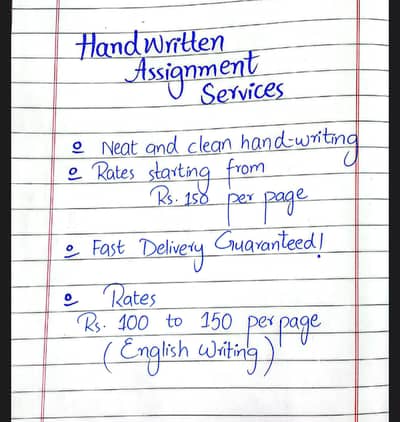 HandWritten
Assignment
Services
o Neat and clean hand-writing
o Rates starting from
Rs. 150 per page
o Fast Delivery Guaranteed!
o Rates
Rs. 100 to 150 per page
(English Writing)